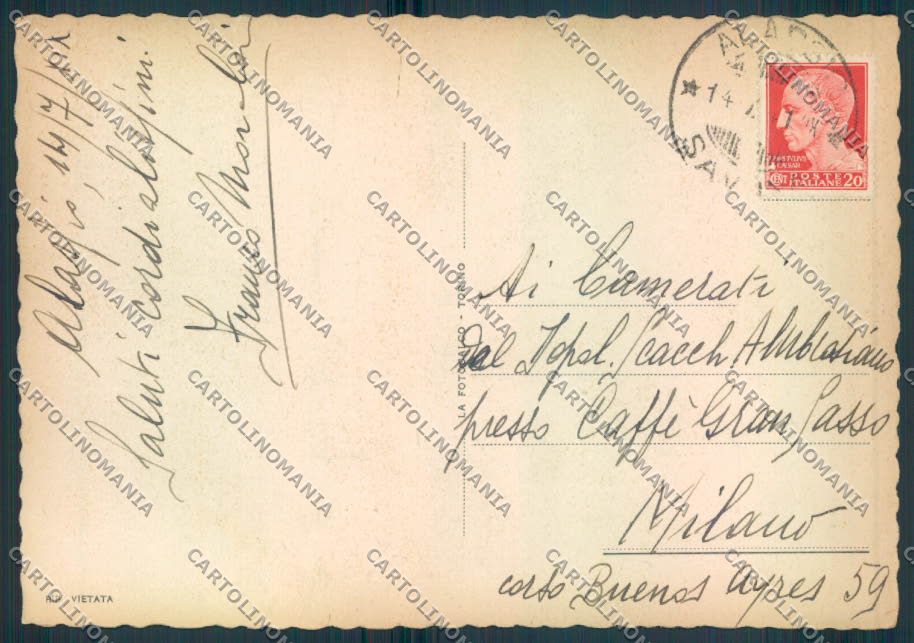 Alassio, 14/7/
Saluti cordialissimi
Franco
LA FOTOCALCO - TORINO
RIP. VIETATA
ALASS
14
SAV
CAESAR
CENT. POSTE ITALIANE 20
Ai Camerati
del Scacch. Ambrosiano
presso Caffè Gran Sasso
Milano
corso Buenos Ayres 59
CARTOLINOMANIA